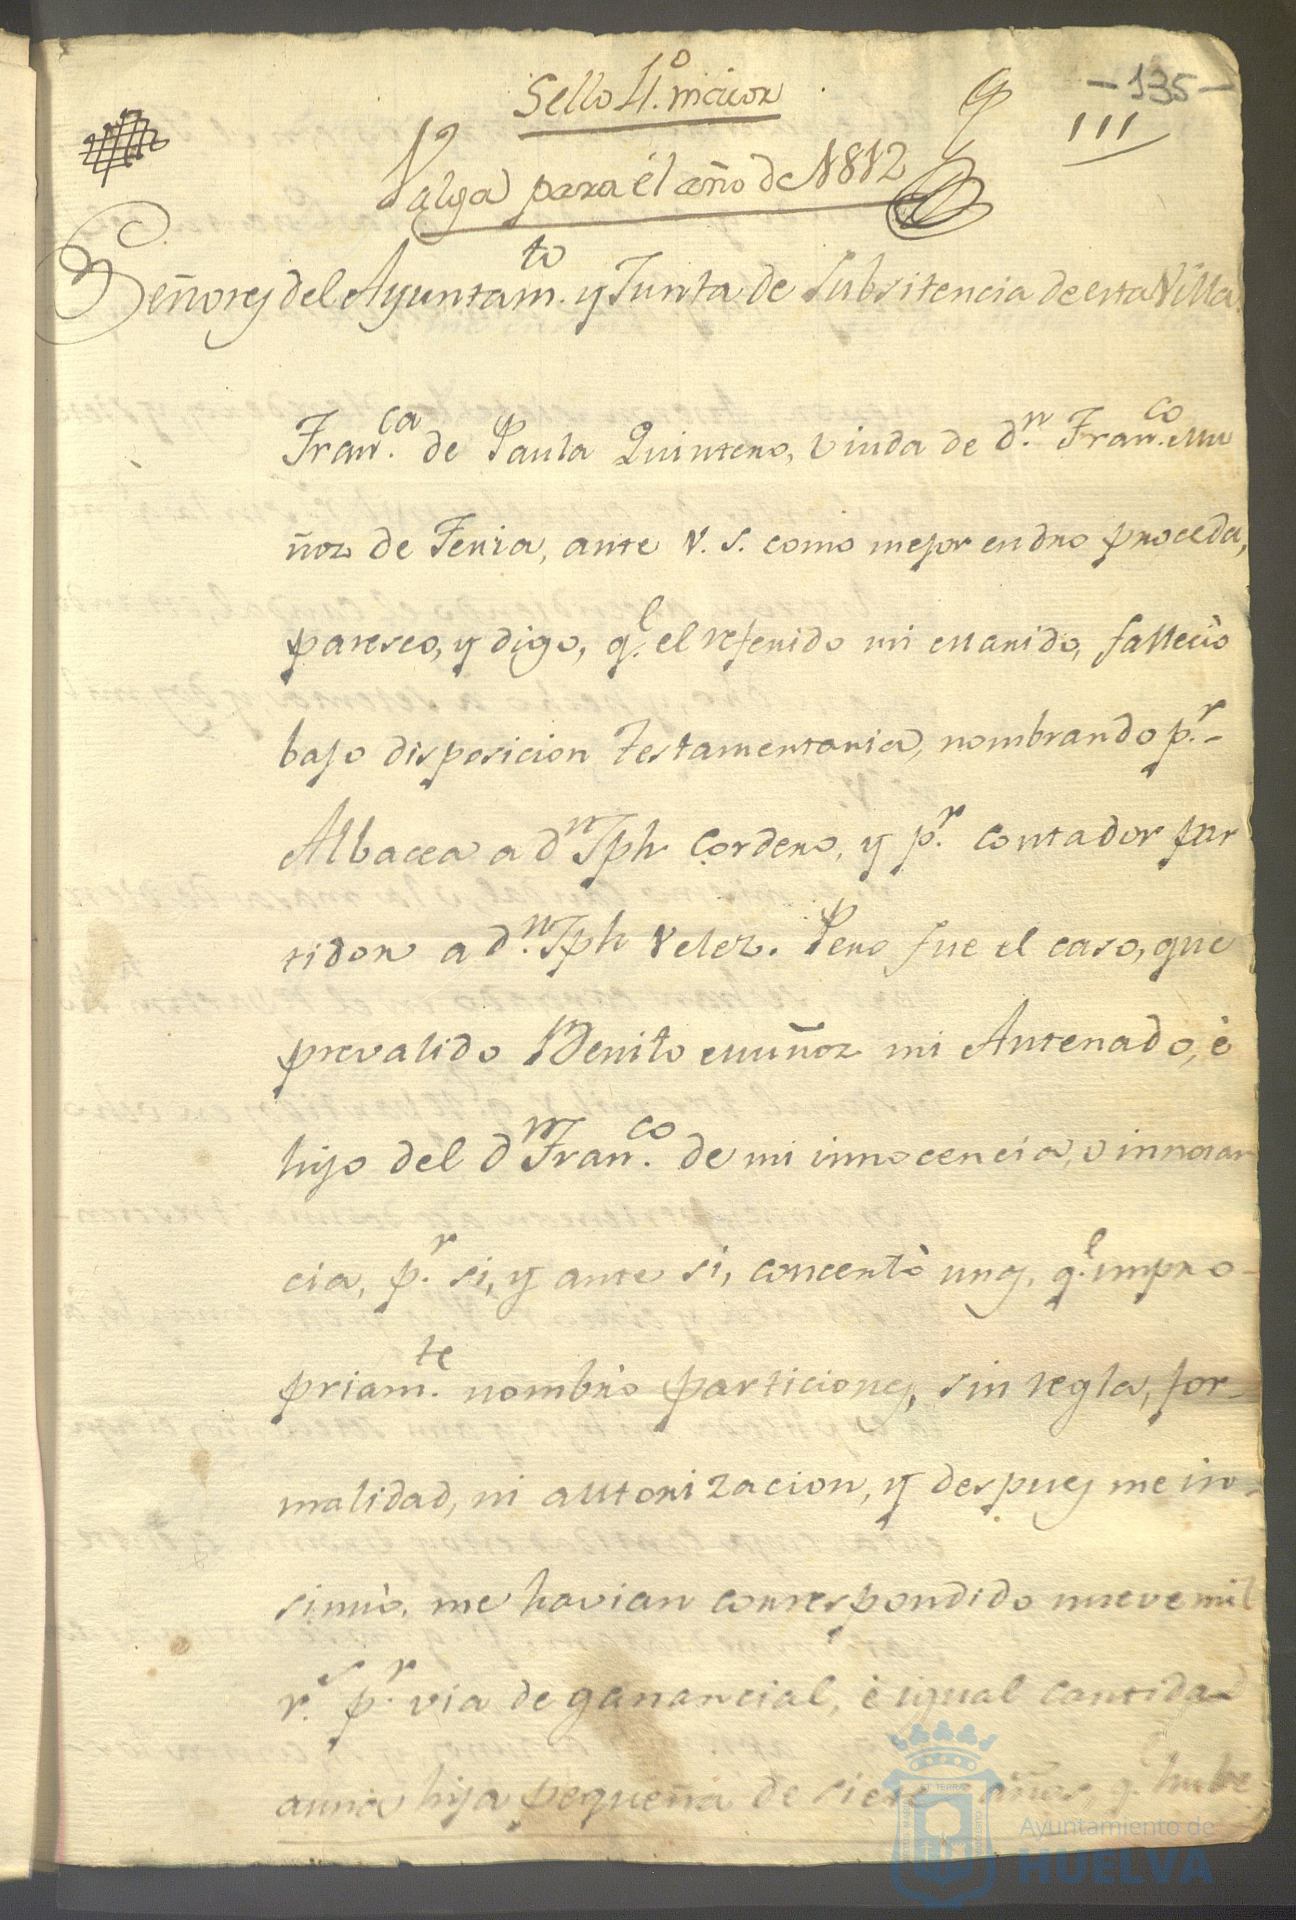 -135-
Sello 4.º maior
111
Valga para él año de 1812
Señores del Ayuntam.to y Junta de Subsitencia de esta Villa.
Fran.ca de Paula Quintero, viuda de d.n Fran.co Mu
ñoz de Feria, ante V. S. como mejor en dro proceda,
paresco, y digo, q.e el referido mi marido, fallecio
bajo disposicion testamentaria, nombrando p.r
Albacea a d.n Jph Cordero, y p.r contador par
tidor a d.n Jph Velez. Pero fue el caso, que
prevalido Benito Muñoz mi Antenado, è
hijo del d.n Fran.co de mi innocencia, o innoran
cia, p.r si, y ante si, concertò unas, q.e impro-
priam.te nombrò particiones, sin regla, for-
malidad, ni autorizacion, y despues me in-
sinuò, me havian correspondido nueve mil
r.s p.r via de ganancial, è igual cantidad
auna hija pequeña de siete años, q.e hube
Ayuntamiento de
HUELVA